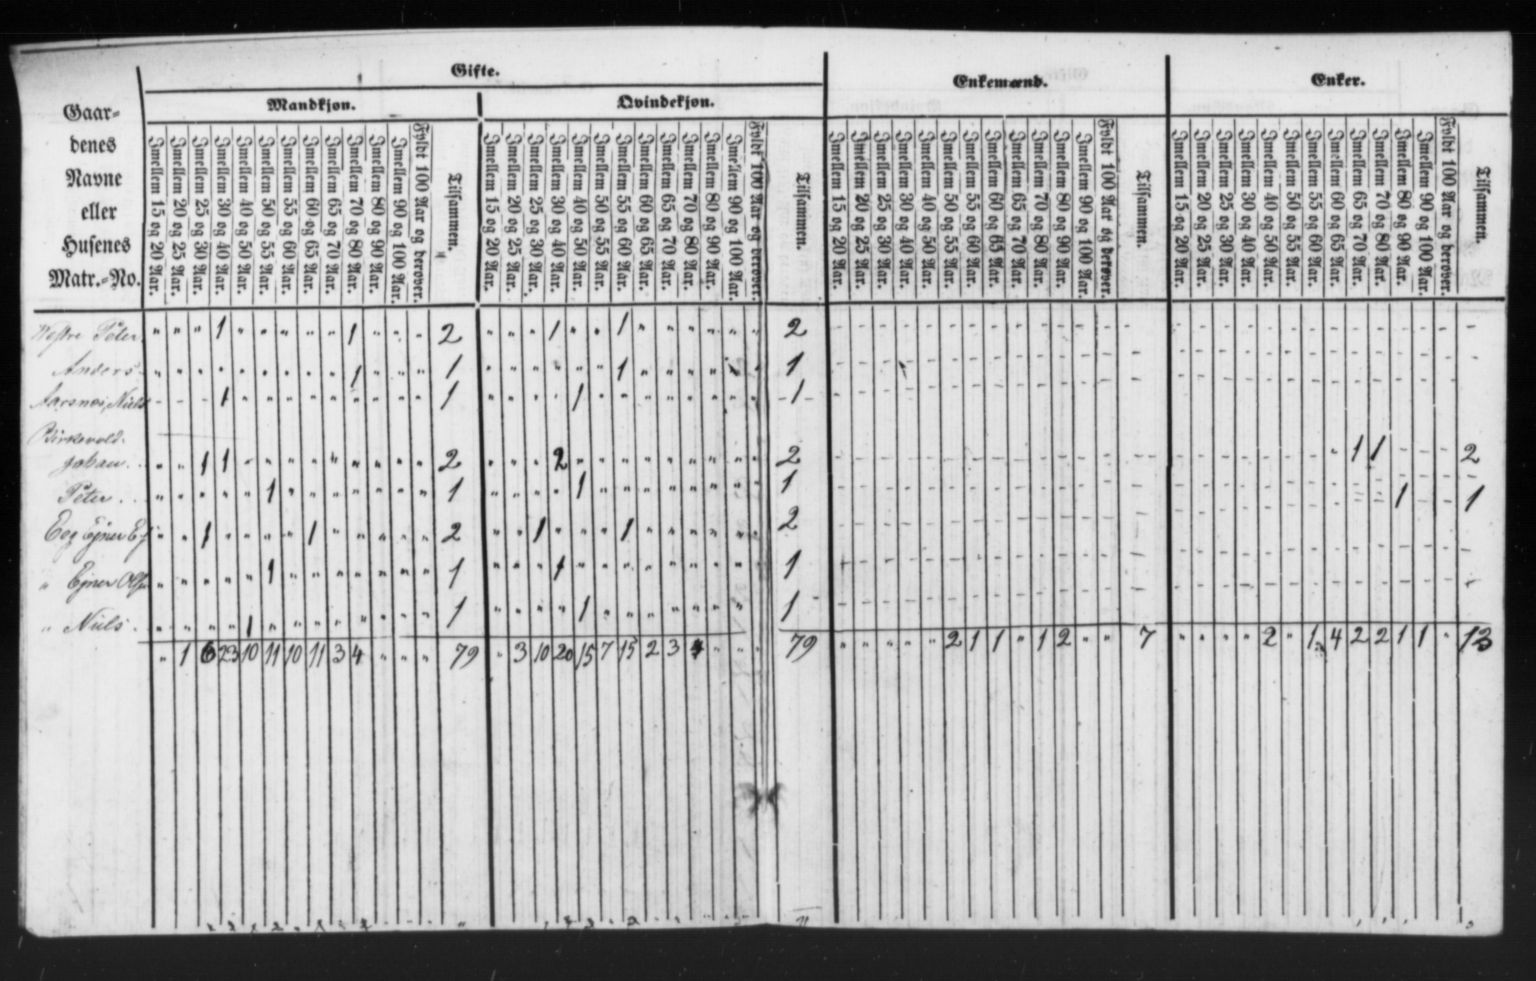 Gifte.
Enkemænd.
Enker.
Mandkjøn.
Qvindekjøn.
Gaar-
denes
Navne
eller
Husenes
Matr.-No.
Imellem 15 og 20 Aar.
Imellem 20 og 25 Aar.
Imellem 25 og 30 Aar.
Imellem 30 og 40 Aar.
Imellem 40 og 50 Aar.
Imellem 50 og 55 Aar.
Imellem 55 og 60 Aar.
Imellem 60 og 65 Aar.
Imellem 65 og 70 Aar.
Imellem 70 og 80 Aar.
Imellem 80 og 90 Aar.
Imellem 90 og 100 Aar.
Fyldt 100 Aar og derover.
Tilsammen.
Imellem 15 og 20 Aar.
Imellem 20 og 25 Aar.
Imellem 25 og 30 Aar.
Imellem 30 og 40 Aar.
Imellem 40 og 50 Aar.
Imellem 50 og 55 Aar.
Imellem 55 og 60 Aar.
Imellem 60 og 65 Aar.
Imellem 65 og 70 Aar.
Imellem 70 og 80 Aar.
Imellem 80 og 90 Aar.
Imellem 90 og 100 Aar.
Fyldt 100 Aar og derover.
Tilsammen.
Imellem 15 og 20 Aar.
Imellem 20 og 25 Aar.
Imellem 25 og 30 Aar.
Imellem 30 og 40 Aar.
Imellem 40 og 50 Aar.
Imellem 50 og 55 Aar.
Imellem 55 og 60 Aar.
Imellem 60 og 65 Aar.
Imellem 65 og 70 Aar.
Imellem 70 og 80 Aar.
Imellem 80 og 90 Aar.
Imellem 90 og 100 Aar.
Fyldt 100 Aar og derover.
Tilsammen.
Imellem 15 og 20 Aar.
Imellem 20 og 25 Aar.
Imellem 25 og 30 Aar.
Imellem 30 og 40 Aar.
Imellem 40 og 50 Aar.
Imellem 50 og 55 Aar.
Imellem 55 og 60 Aar.
Imellem 60 og 65 Aar.
Imellem 65 og 70 Aar.
Imellem 70 og 80 Aar.
Imellem 80 og 90 Aar.
Imellem 90 og 100 Aar.
Fyldt 100 Aar og derover.
Tilsammen.
Peter 1 1 2 1 1 2
Anders 1 1 1 1
Niels 1 1 1 1
Johan 1 1 2 2 2 1 1 2
Peter 1 1 1 1 1 1
Ejner 1 1 2 1 1 2
" Ejner 1 1 1 1
" Niels 1 1 1 1
" 1 6 23 10 11 10 11 3 4 " " " 79 " 3 10 20 15 7 15 2 3 4 " " " 79 " " " " " 2 1 1 " 1 2 " " 7 " " " " 2 " 1 4 2 2 1 1 " 13